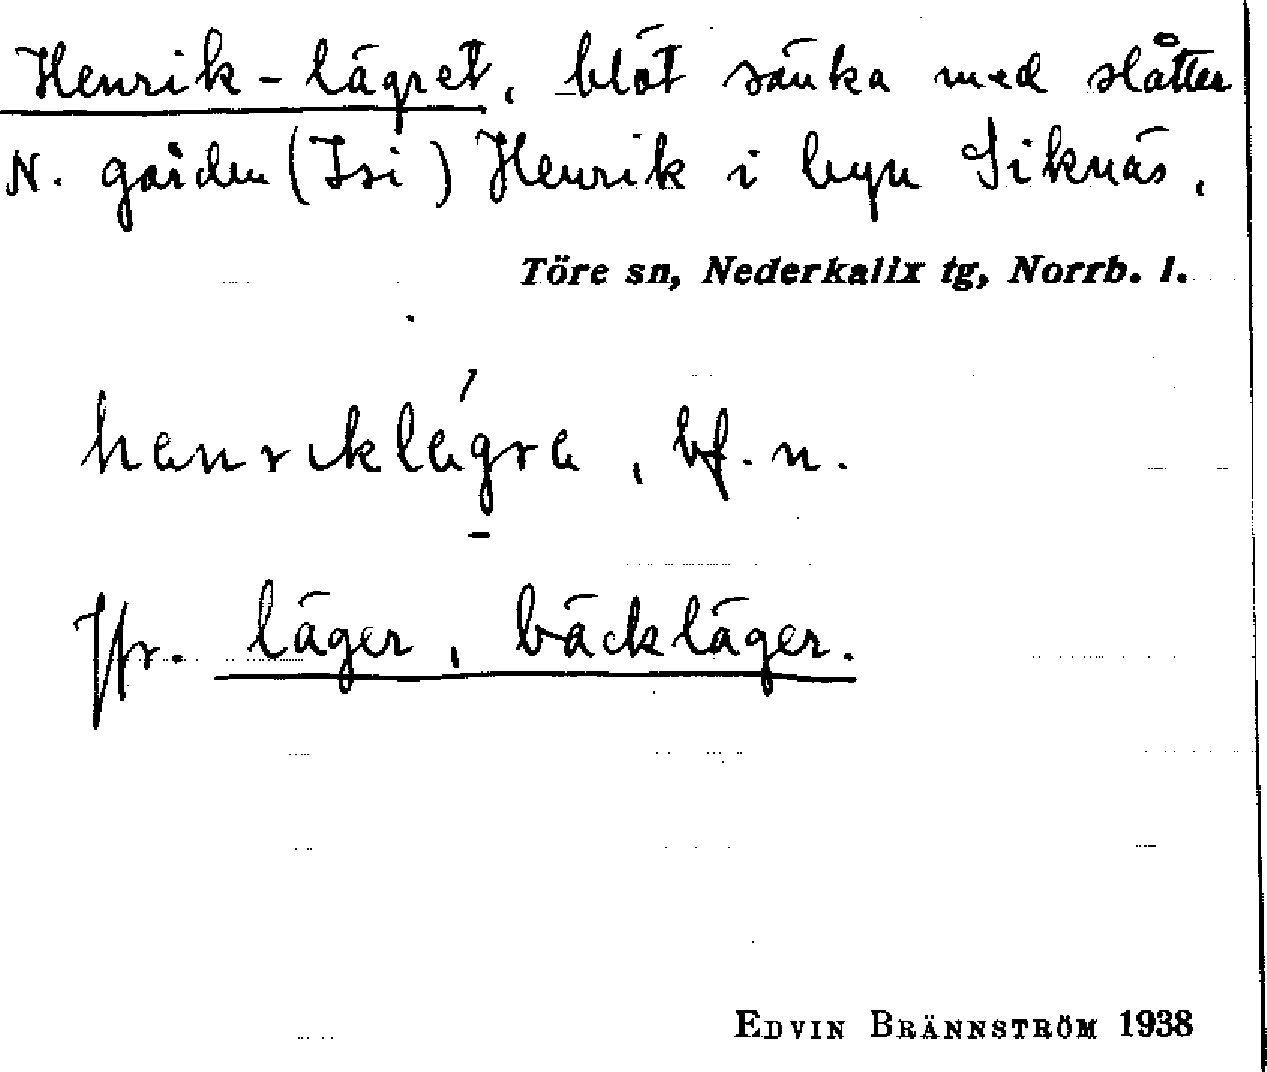 Henrik-lägret, blöt sänka med slåtter
N. gården (Isi) Henrik i byn Siknäs.
Töre sn, Nederkalix tg, Norrb. l.
hanrɩklágra, bf. n.
Jfr. läger, bäckläger.
EDVIN BRÄNNSTRÖM 1938